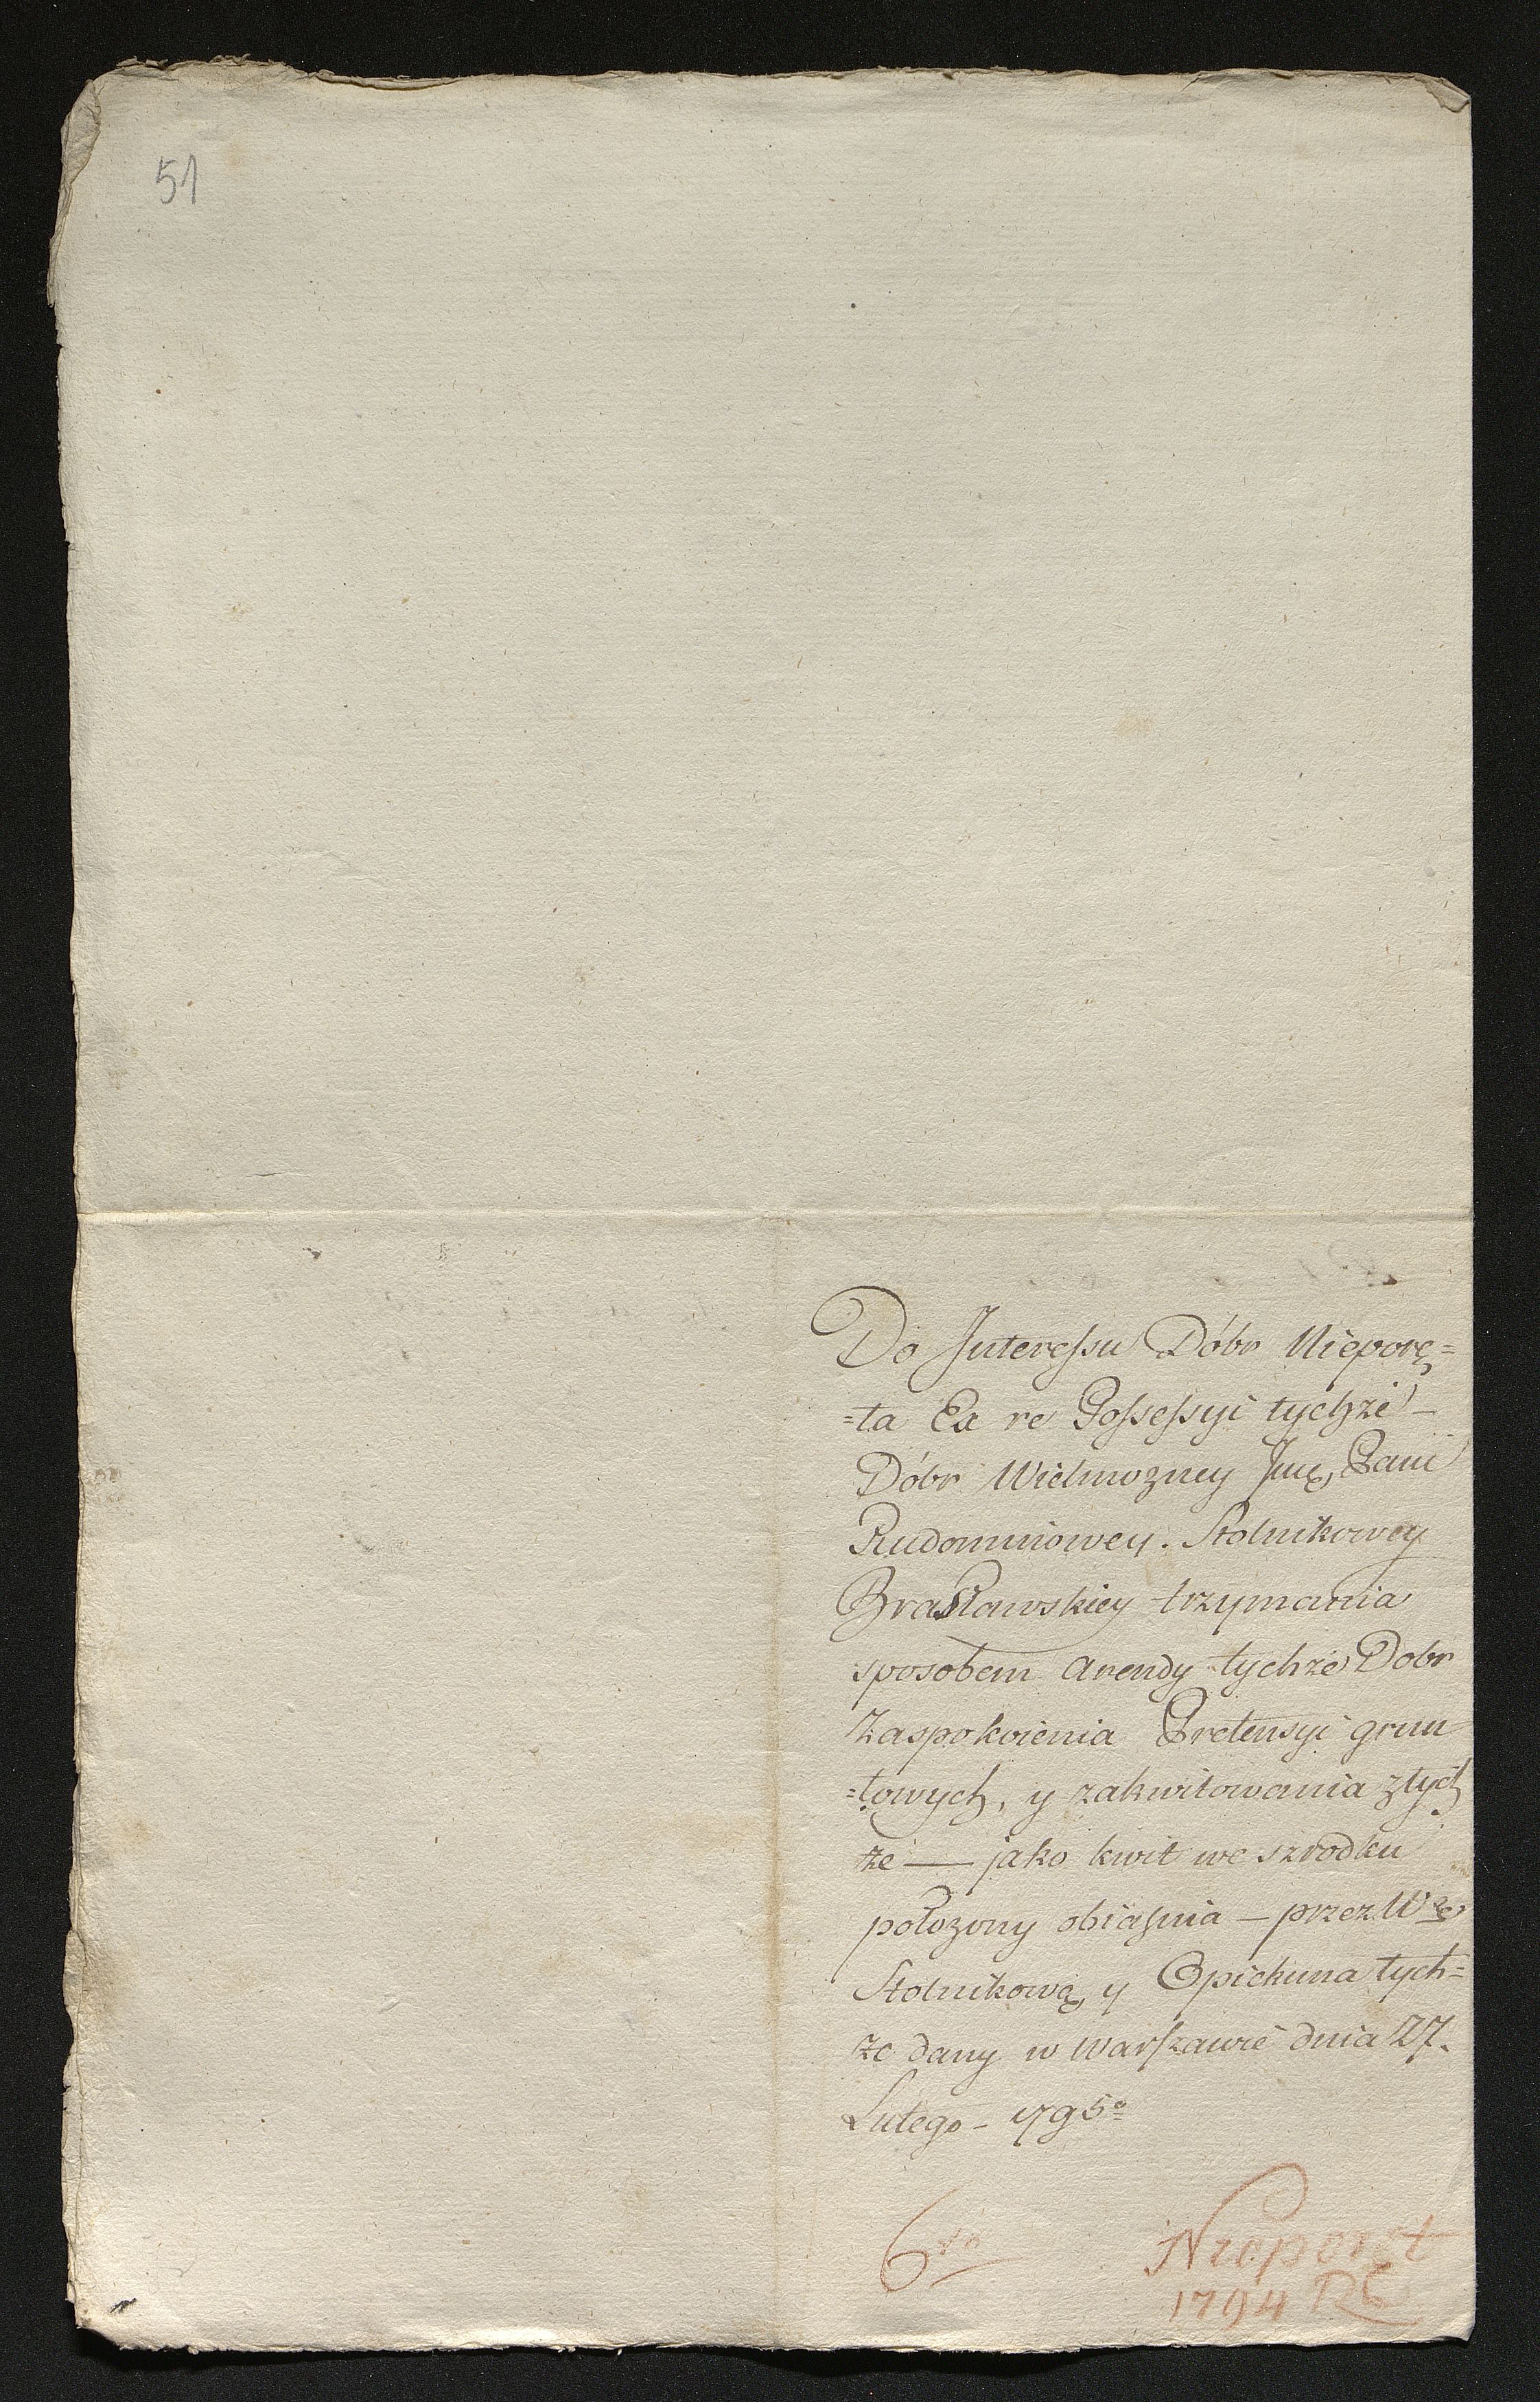 51
Do Interessu Dóbr Nieporę=
=ta Ex re Possessyi tychże —
Dóbr Wielmozney Jmę Pani
Rudominowey. Stolnikowey
Brasławskiey trzymania
sposobem arendy tychże Dobr
Zaspokoienia Pretensyi grun
=towych, y zakwitowania z tych
że — jako kwit we szrodku
położony obiaśnia — przez W
Stolnikową y Opiekuna tych=
że dany w Warszawie dnia 27.
Lutego — 1795º
6to
Nieporęt
1794 R